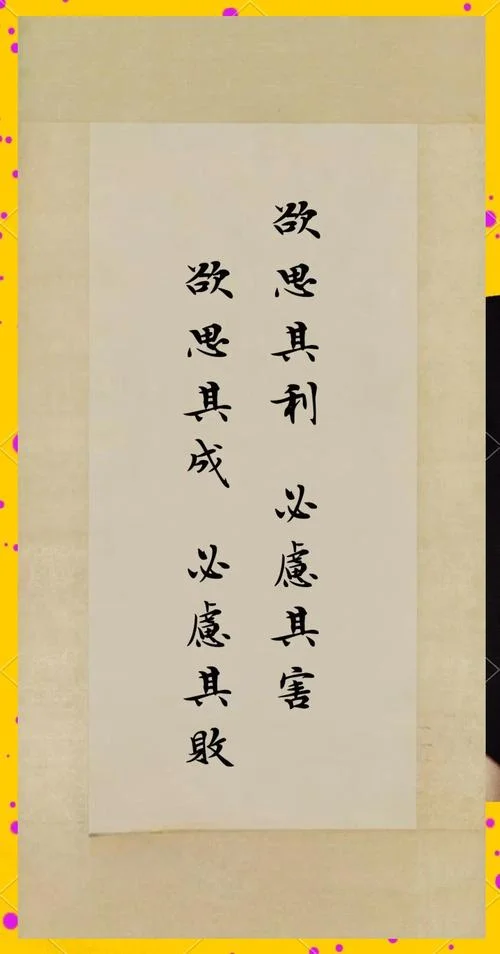 欲思其利 必慮其害
欲思其成 必慮其敗